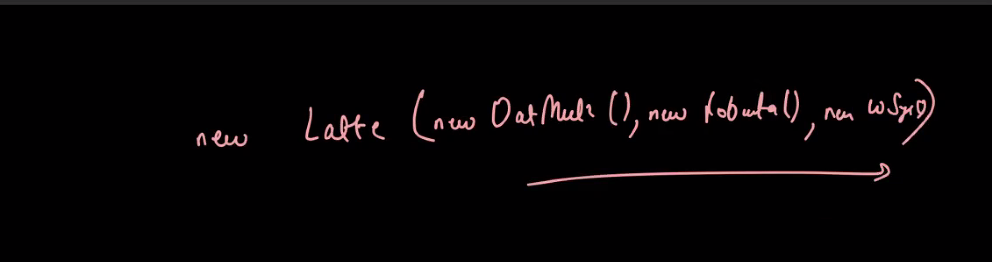 new Latte (new OatMilk (), new Robusta(), new WSyr())